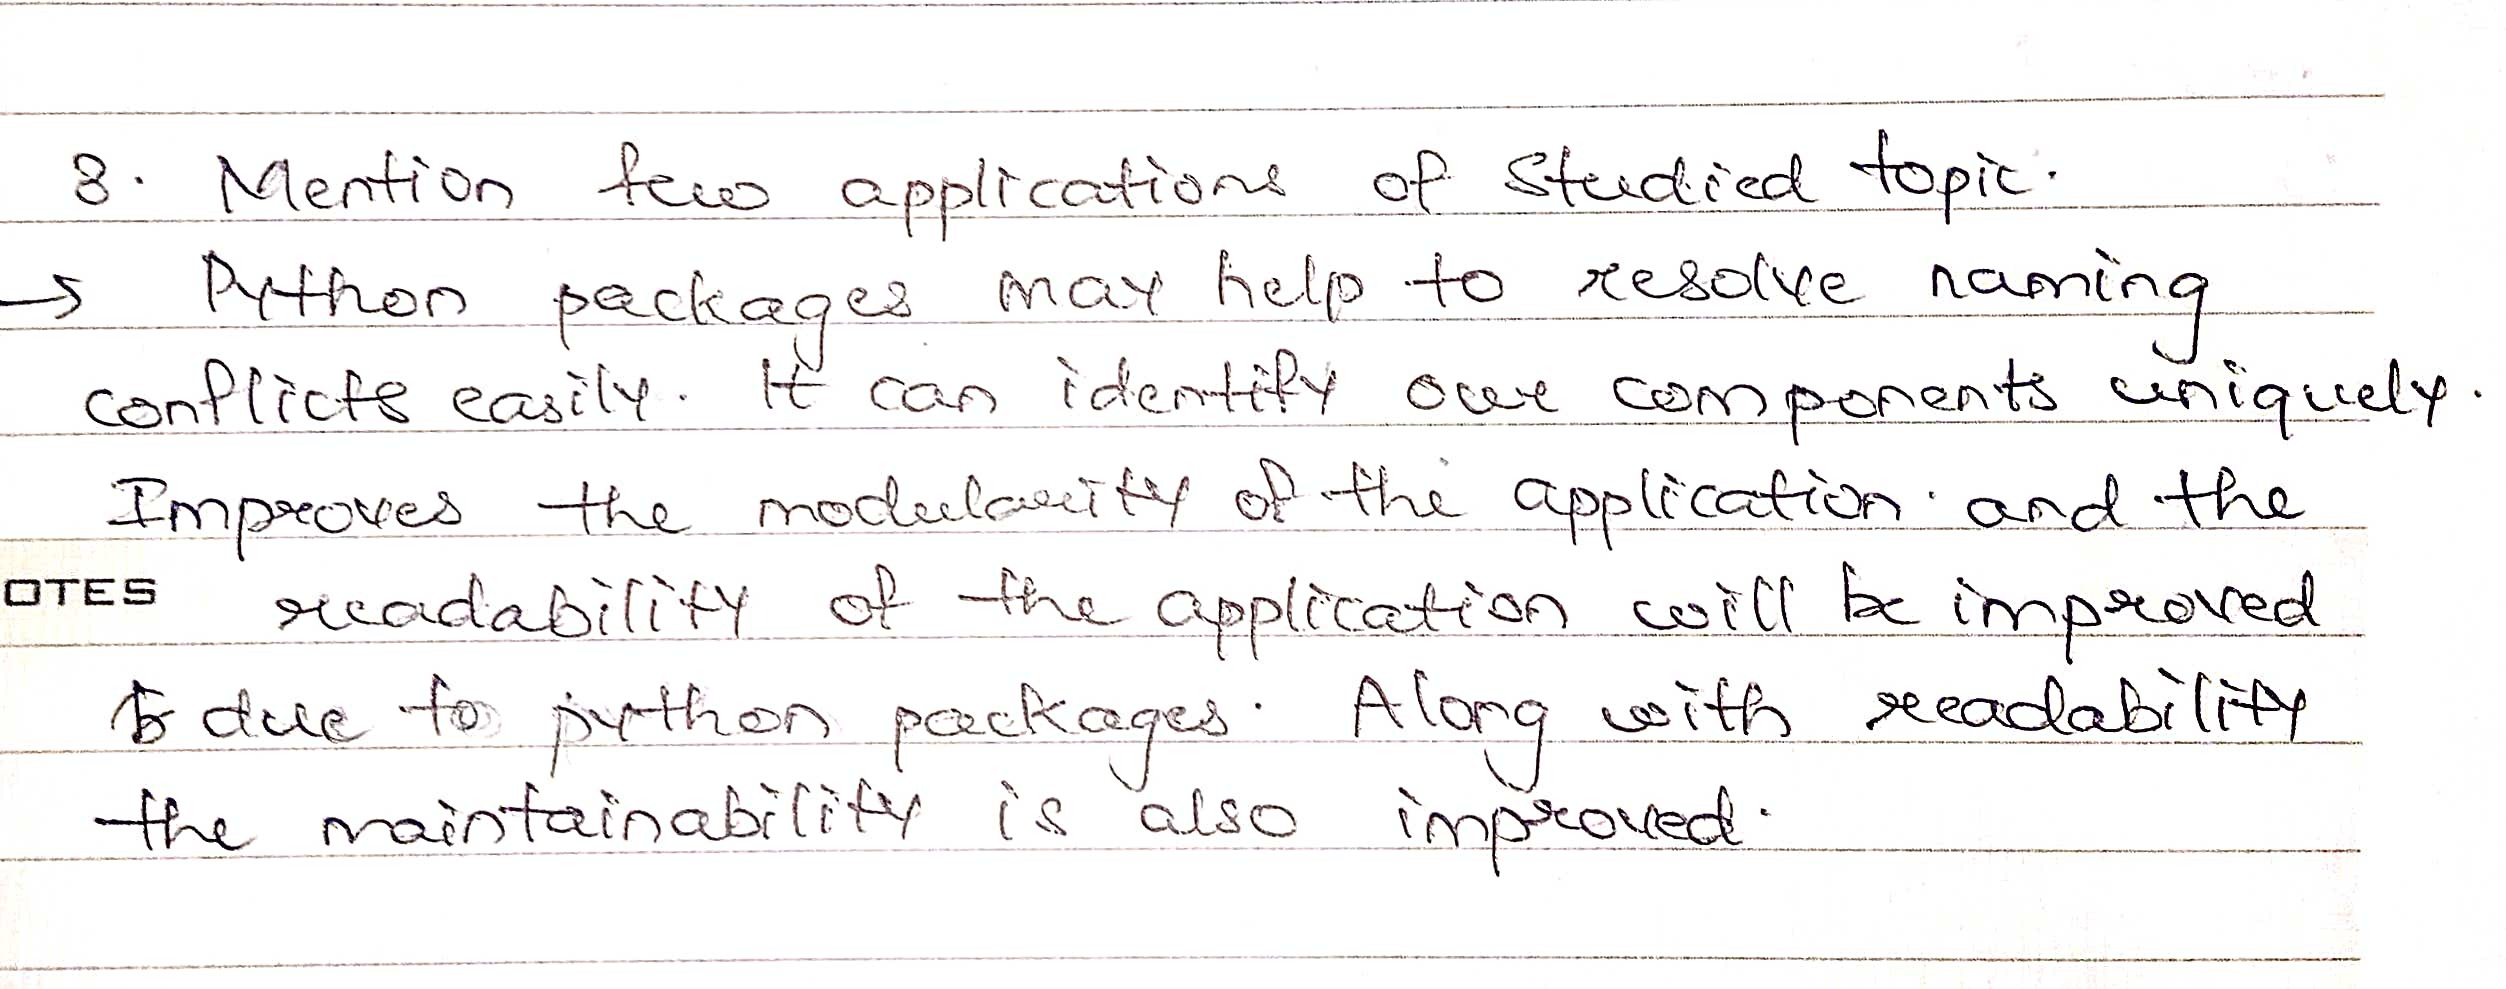 8. Mention few applications of studied topic.
→ Python packages may help to resolve naming
conflicts easily. It can identify our components uniquely.
Improves the modularity of the application and the
OTES readability of the application will be improved
due to python packages. Along with readability
the maintainability is also improved.